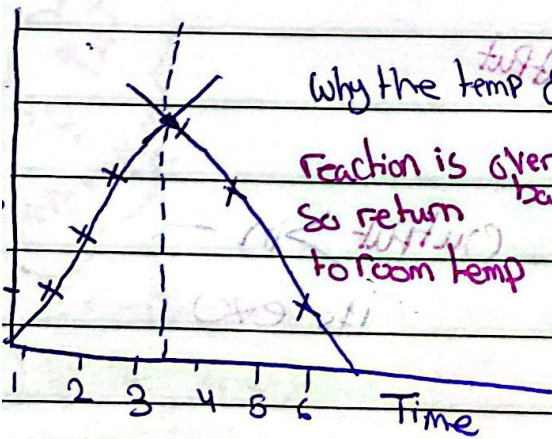 Why the temp
reaction is over
so return
to room temp
1 2 3 4 5 6
Time